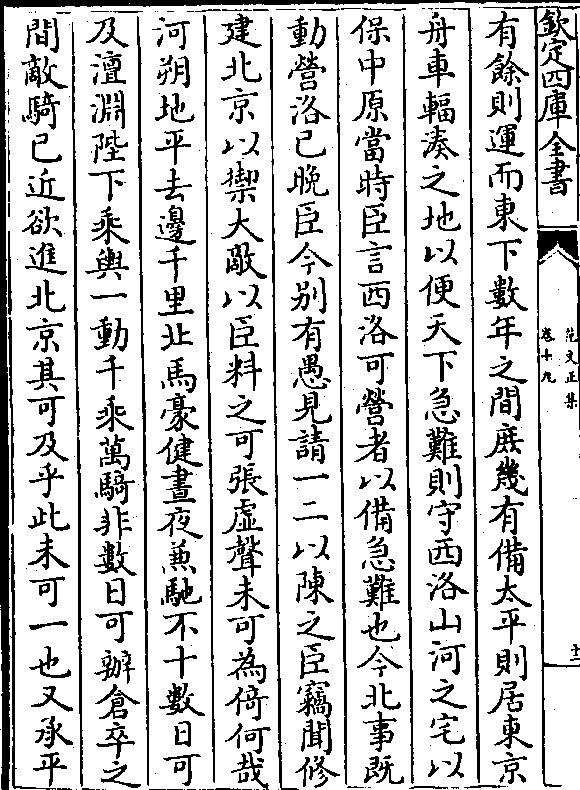 欽定四庫全書
范文正集
卷十九
十二
有餘則運而東下數年之間庶幾有備太平則居東京
舟車輻湊之地以便天下急難則守西洛山河之宅以
保中原當時臣言西洛可營者以備急難也今北事既
動營洛已晚臣今别有愚見請一二以陳之臣竊聞修
建北京以禦大敵以臣料之可張虚聲未可為倚何哉
河朔地平去邊千里北馬豪健晝夜兼馳不十數日可
及澶淵陛下乘輿一動千乘萬騎非數日可辦倉卒之
間敵騎已近欲進北京其可及乎此未可一也又承平